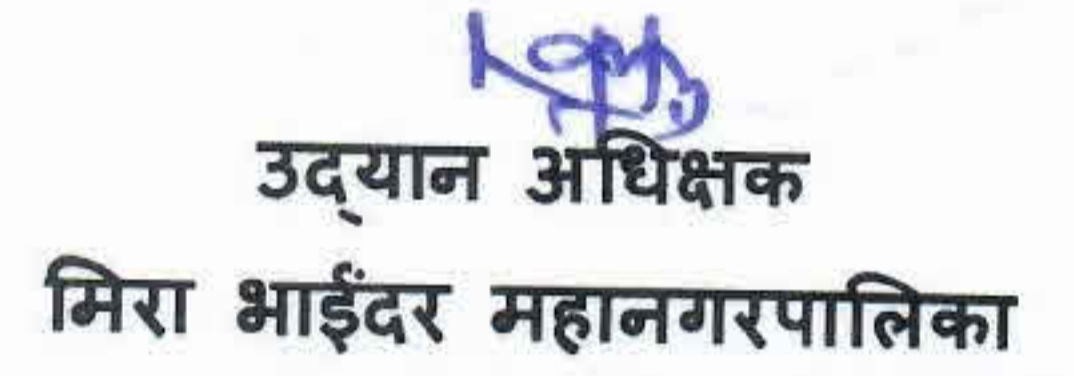 उद्‌यान अधिक्षक
मिरा भाईंदर महानगरपालिका